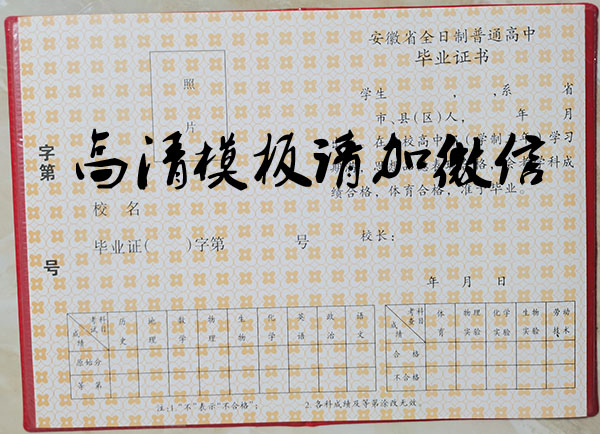 安徽省全日制普通高中
毕业证书
照
片
学生 , ,系 省
市、县(区)人, 年 月
在 校高中 (学制 年)学习
成
绩合格,体育合格,准予毕业。
高清模板请加微信
字第
号
校 名
毕业证( )字第 号
校长:
年 月 日
考试科目 成绩 历史 地理 数学 物理 生物 化学 英语 政治 语文
原始分
等第
考查科目 成绩 体育 物理实验 化学实验 生物实验 劳动技术
合 格
不合格
注:1.“不”表示“不合格”; 2.各科成绩及等第涂改无效。